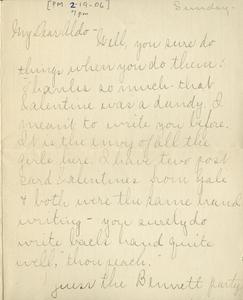 [P.M. 2-19-06]
7pm
Sunday-
My Dear Udo-
Well, you sure do
things when you do them!
Thanks so much- that
Valentine was a dandy. I
meant to write you before.
It is the envy of all the
girls here. I have two post
card valentines from Yale
& both were the same hand
writing- you surely do
write back hand quite
well, "thou peach."
Guess the Bennett party